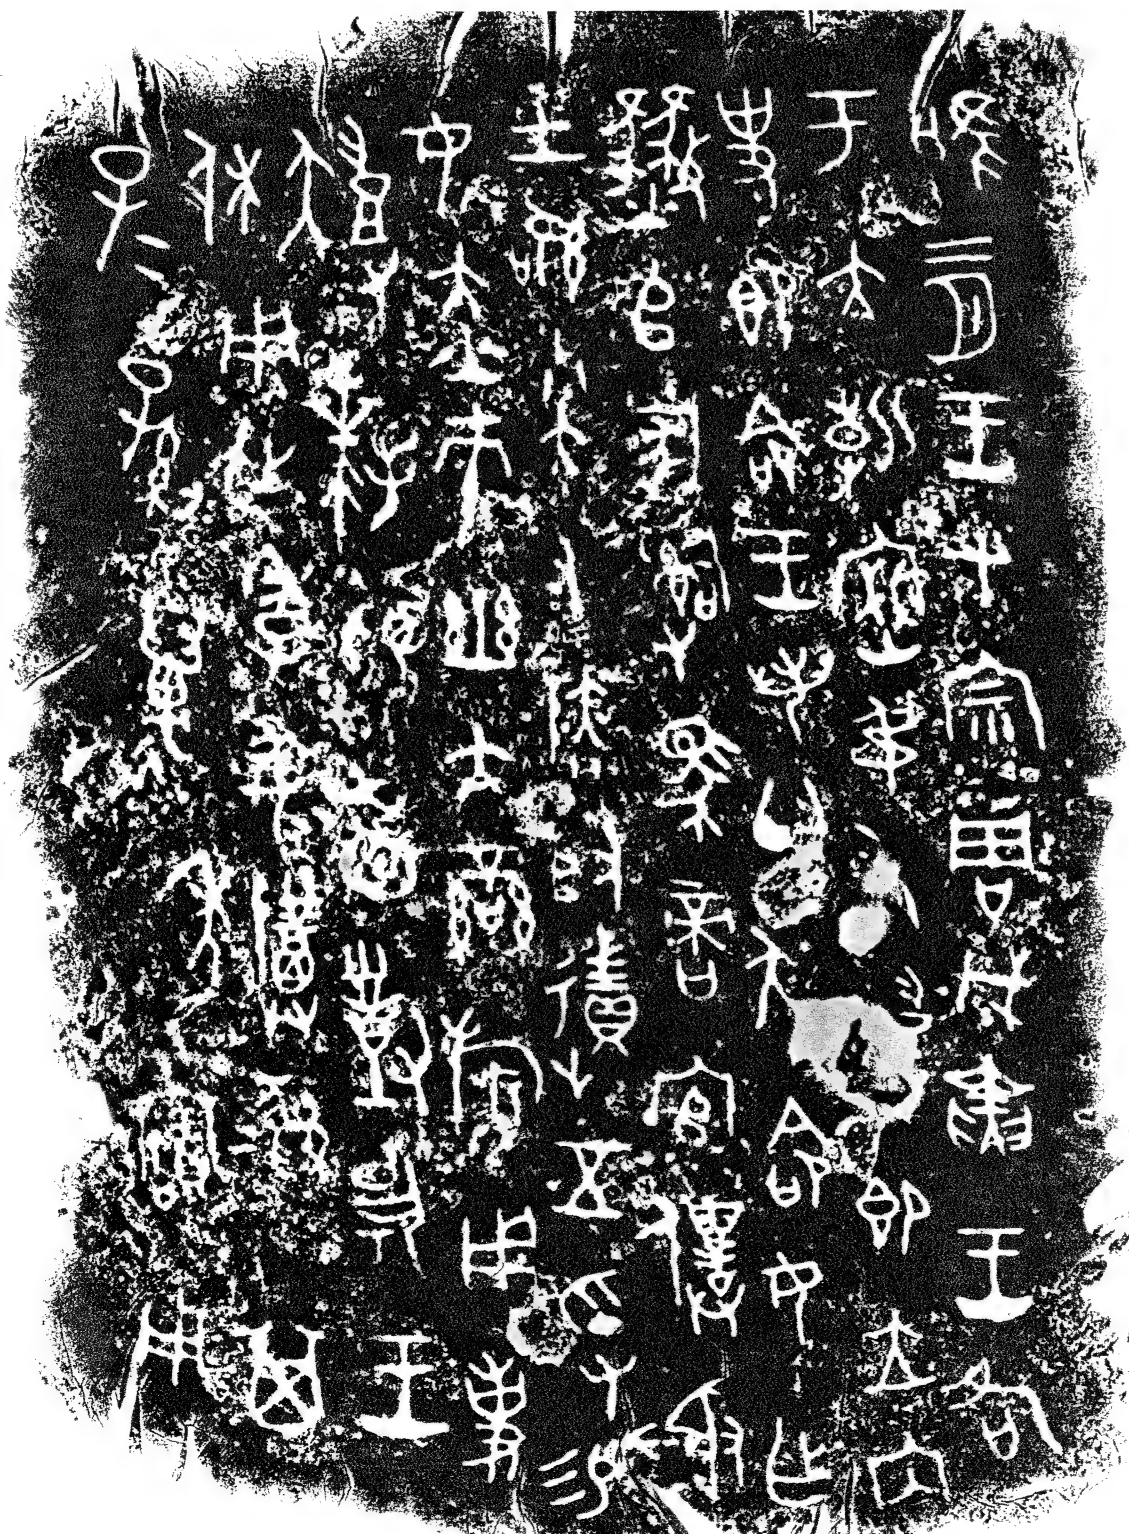 唯二月王才宗周戊寅王各
于大朝密叔右趞即立内
史即命王若曰趞命女乍
𢑴𠂤冢𤔲馬啻官僕射
士訊小大又隣取徵五寽易
女赤巿幽亢䜌旂用事
趞拜𩒨首對揚王
休用乍季姜尊彝其
子子孫孫萬年寶用